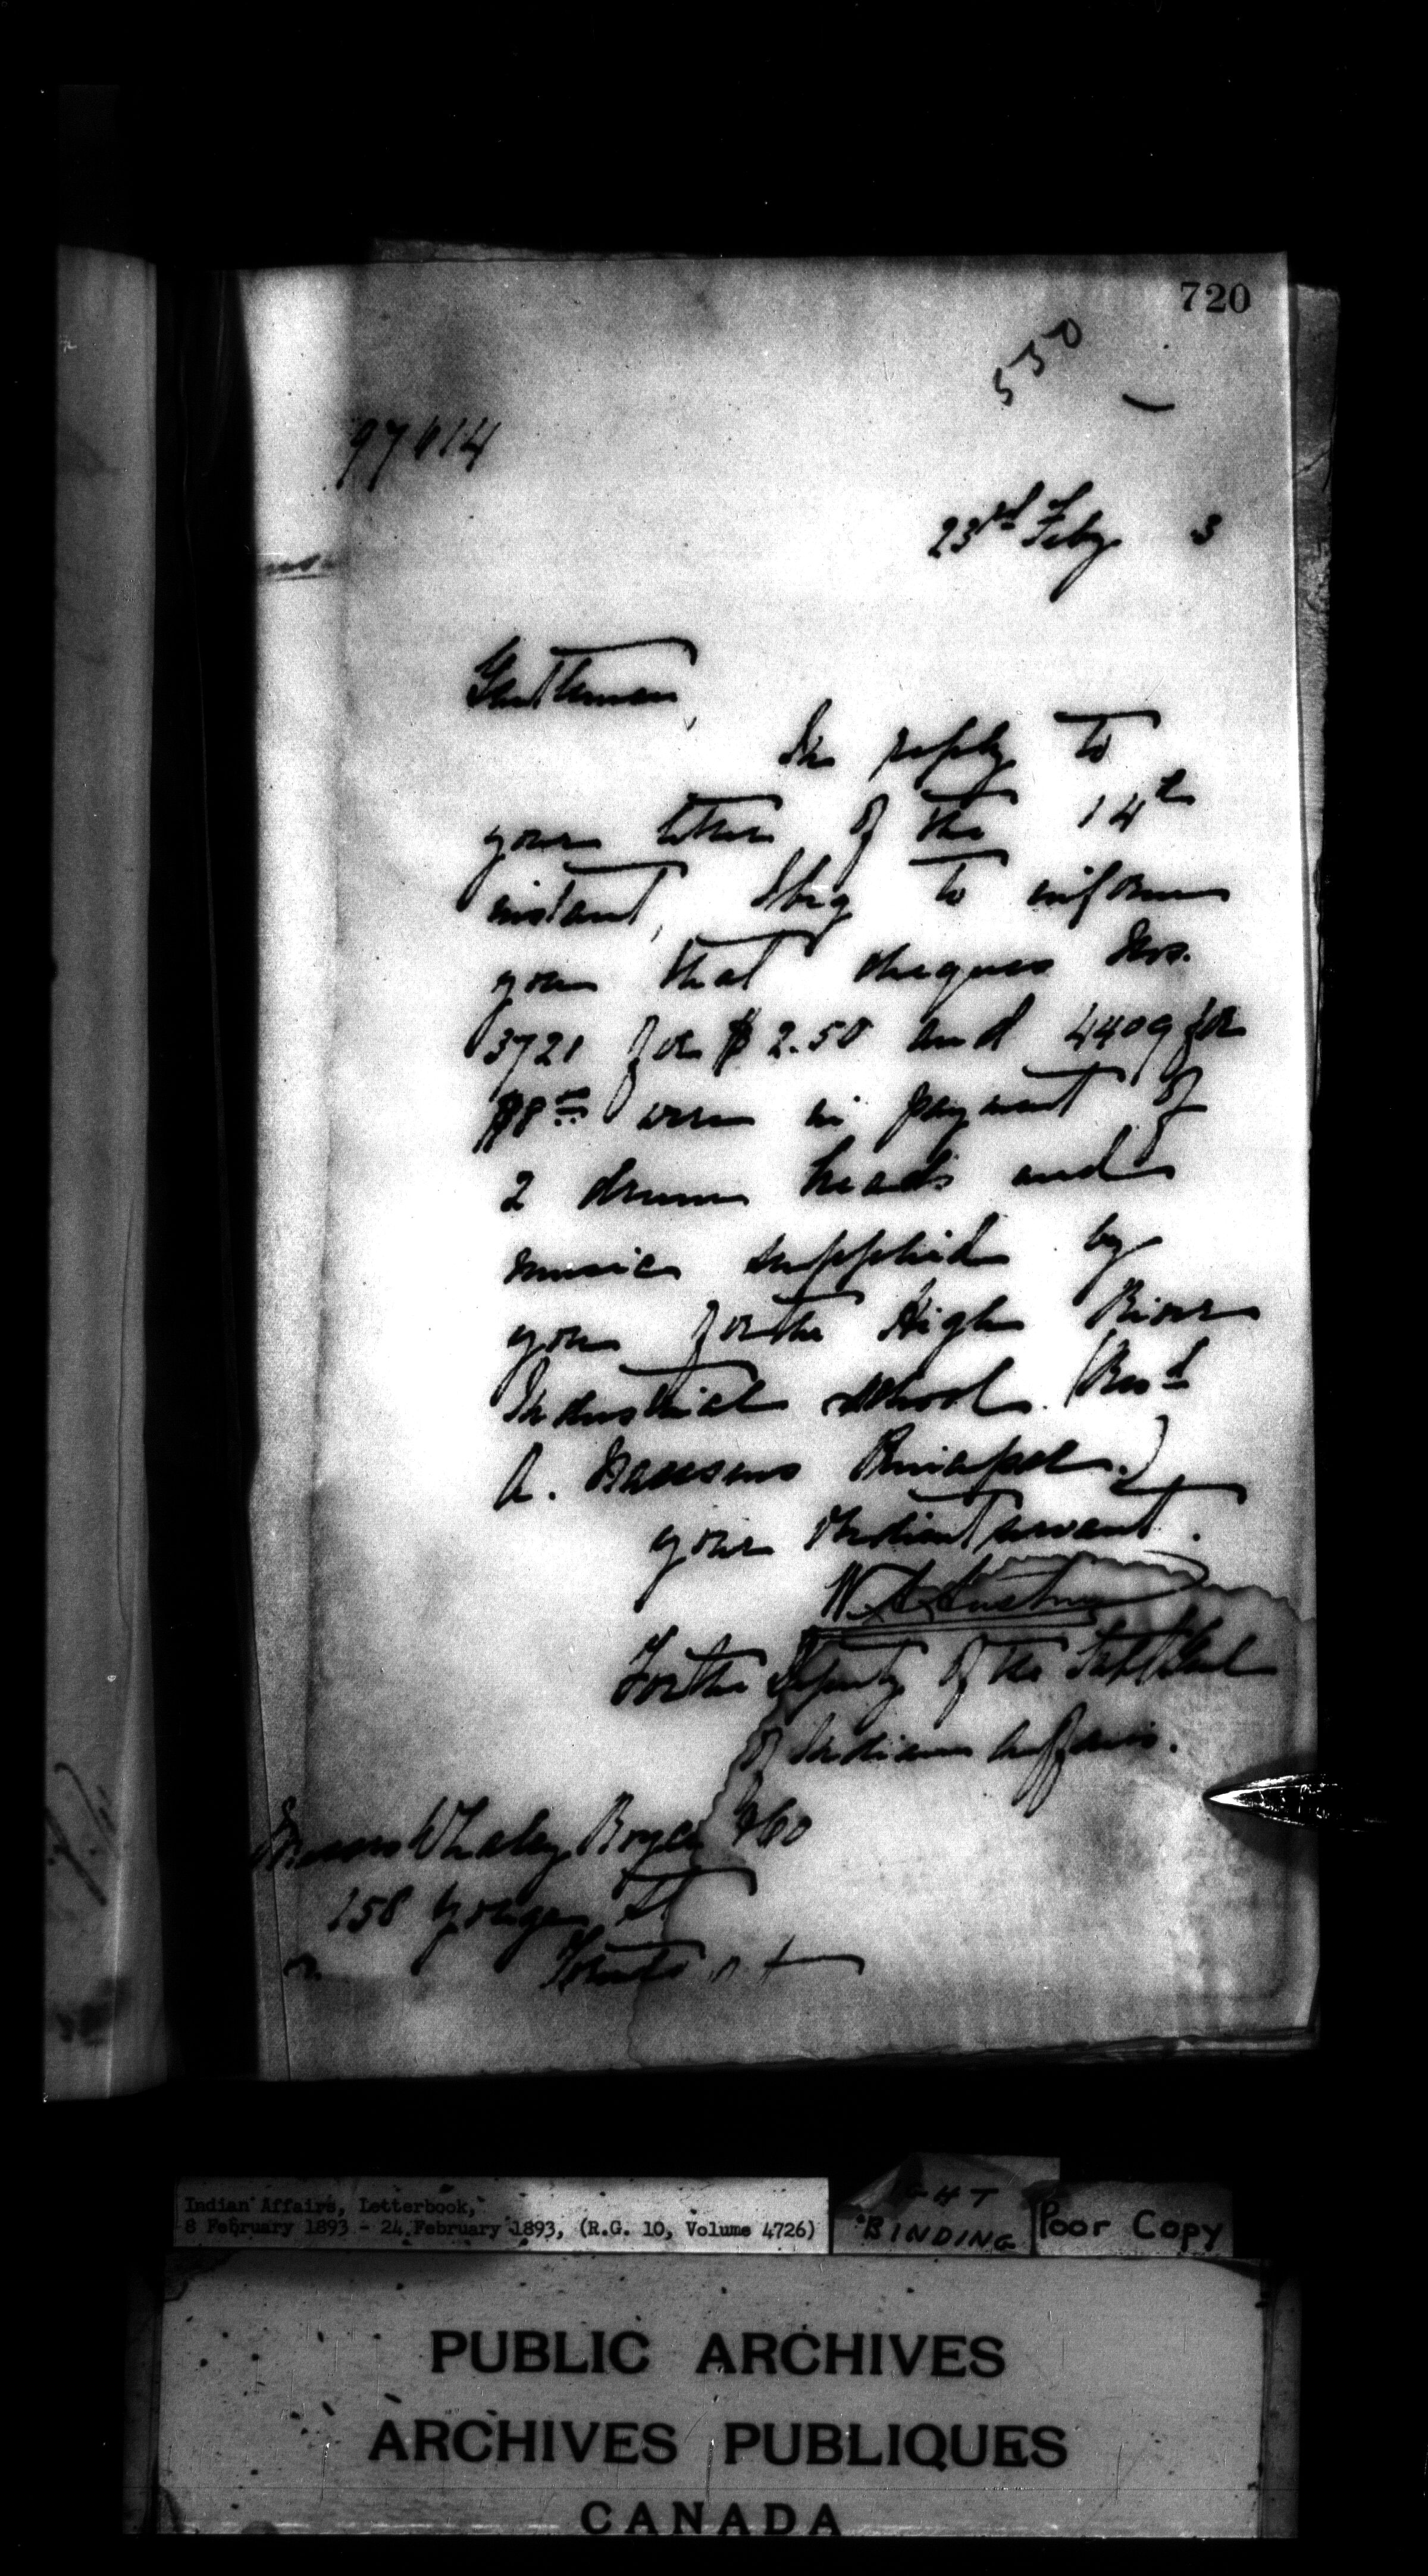 720
530
97614
23rd Feby 3
Gentlemen,
In reply to
your letter of the 14th
instant, I beg to inform
you that cheques Nos.
3721 for $2.50 and 4409 for
$8.00 were in payment of
2 drum heads and
music supplied by
you for the High River
Industrial school. (Revd
A. Naessens Principal.)
your obedient servant.
W A Austin
For the Deputy of the Supt Genl
of Indian Affairs.
Messrs Whaley Royce & Co
158 Yonge St
Toronto
Indian Affairs, Letterbook,
8 February 1893 - 24 February 1893, (R.G. 10, Volume 4726)
BINDING
Poor Copy
PUBLIC ARCHIVES
ARCHIVES PUBLIQUES
CANADA